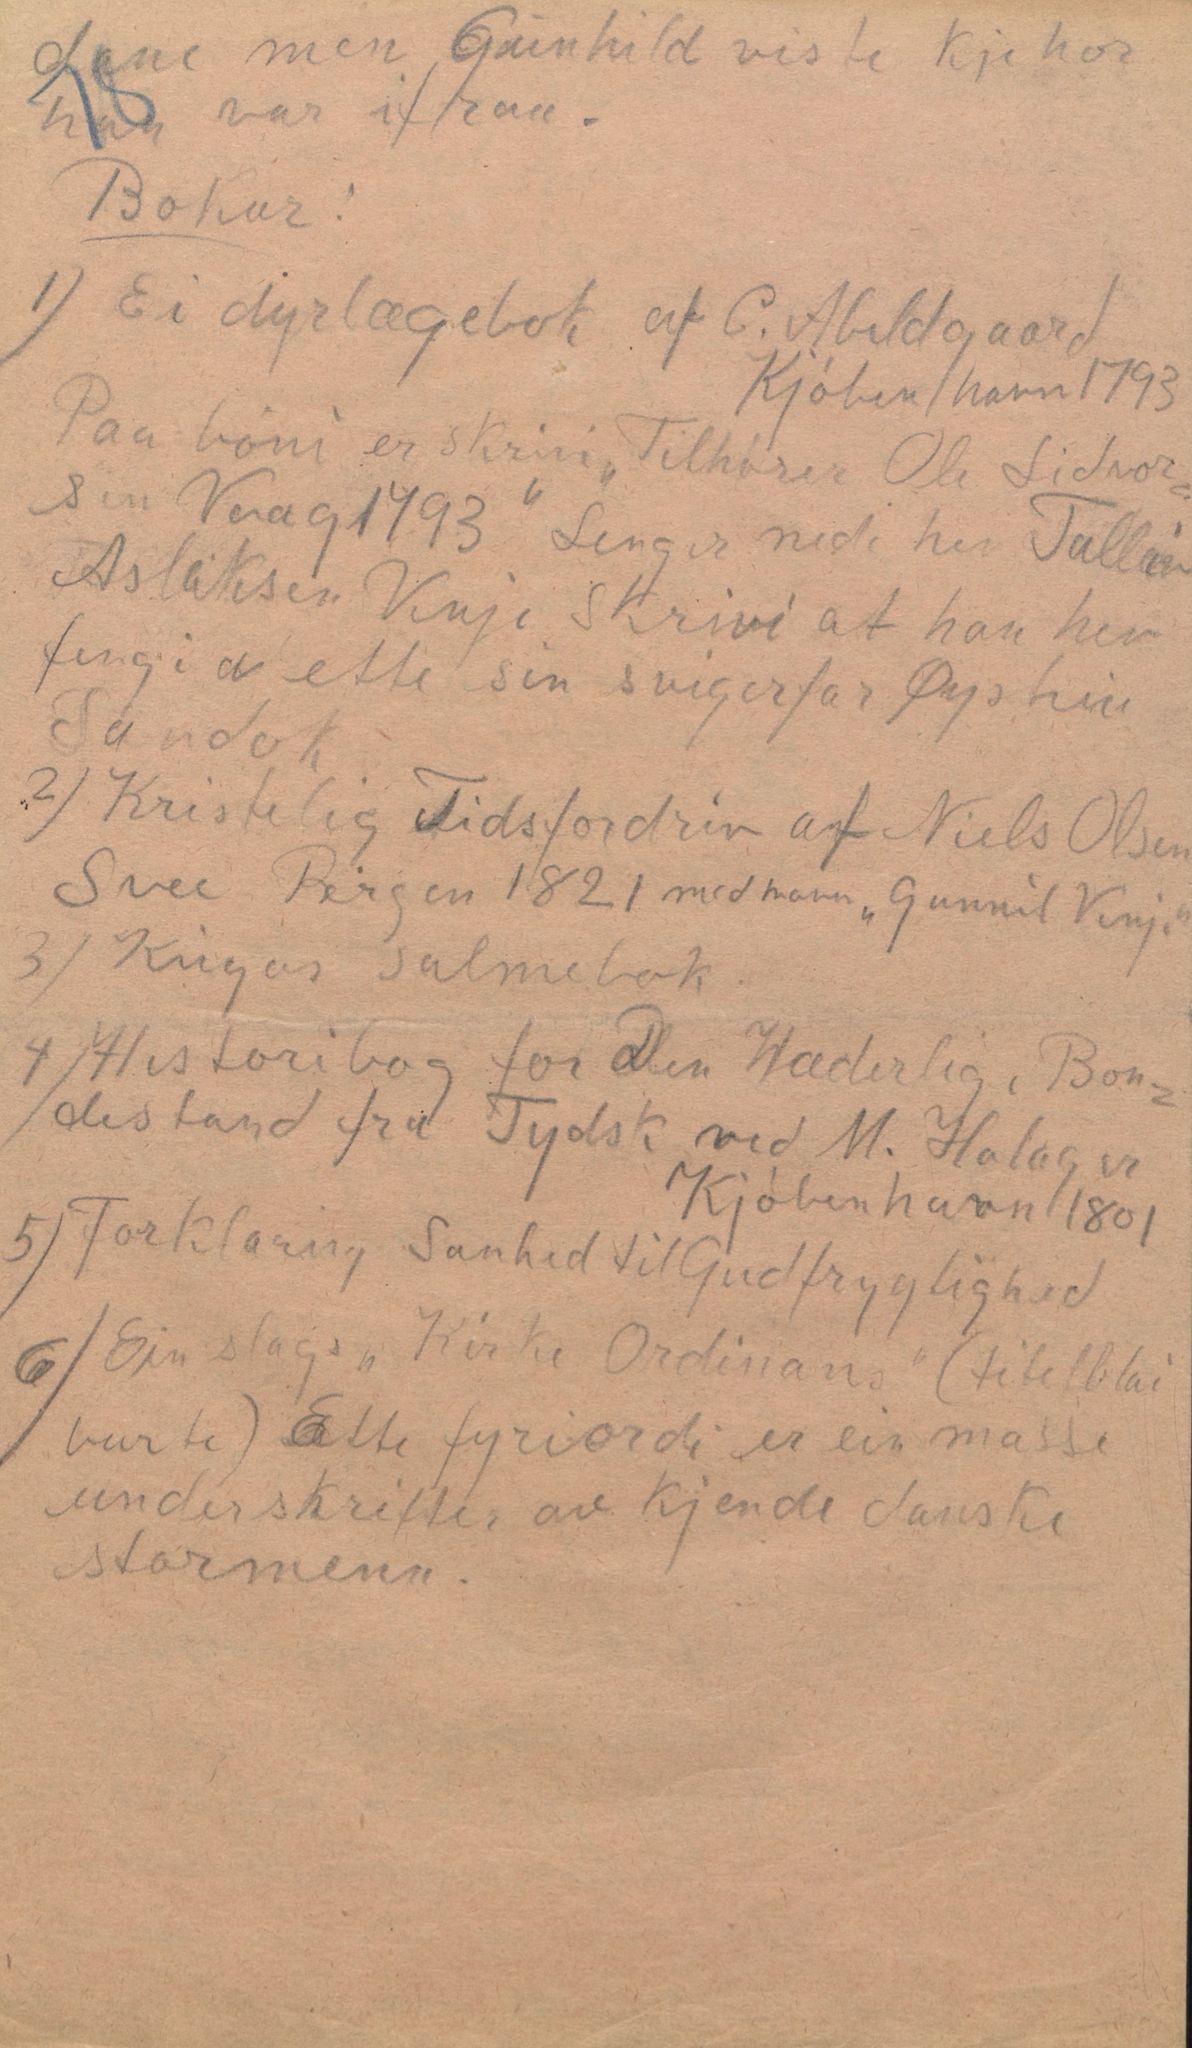 dane men Gunhild viste kje hor
78
han var ifraa.
Bokar:
1) Ei dyrlægebok af C. Abildgaard
Kjøbenhavn 1793
Paa boni er skrivi „Tilhører Ole Sidvor=
sen Vaag 1793" Lenger nedi hev Talleiv
Aslaksen Veaje skrivi at han hev
fengi d ette sin svigerfar Øystein
Sandok
2) Kristelig Tidsfordriv af Niels Olsen
Svee Bergen 1821 med navn „Gunnil
3) Kingos salmebok
4) Historibog for Den Hæderlige Bon=
destand fra Tydsk ved M. Halager
Kjøbenhavn 1801
5) Forklaring Sanhed til Gudfrygtighed
6) Ein slags „Kirke Ordinans" (titelblai
burte) Ette fyriordi er ein masse
underskrifter av kjende danske
stormenn.